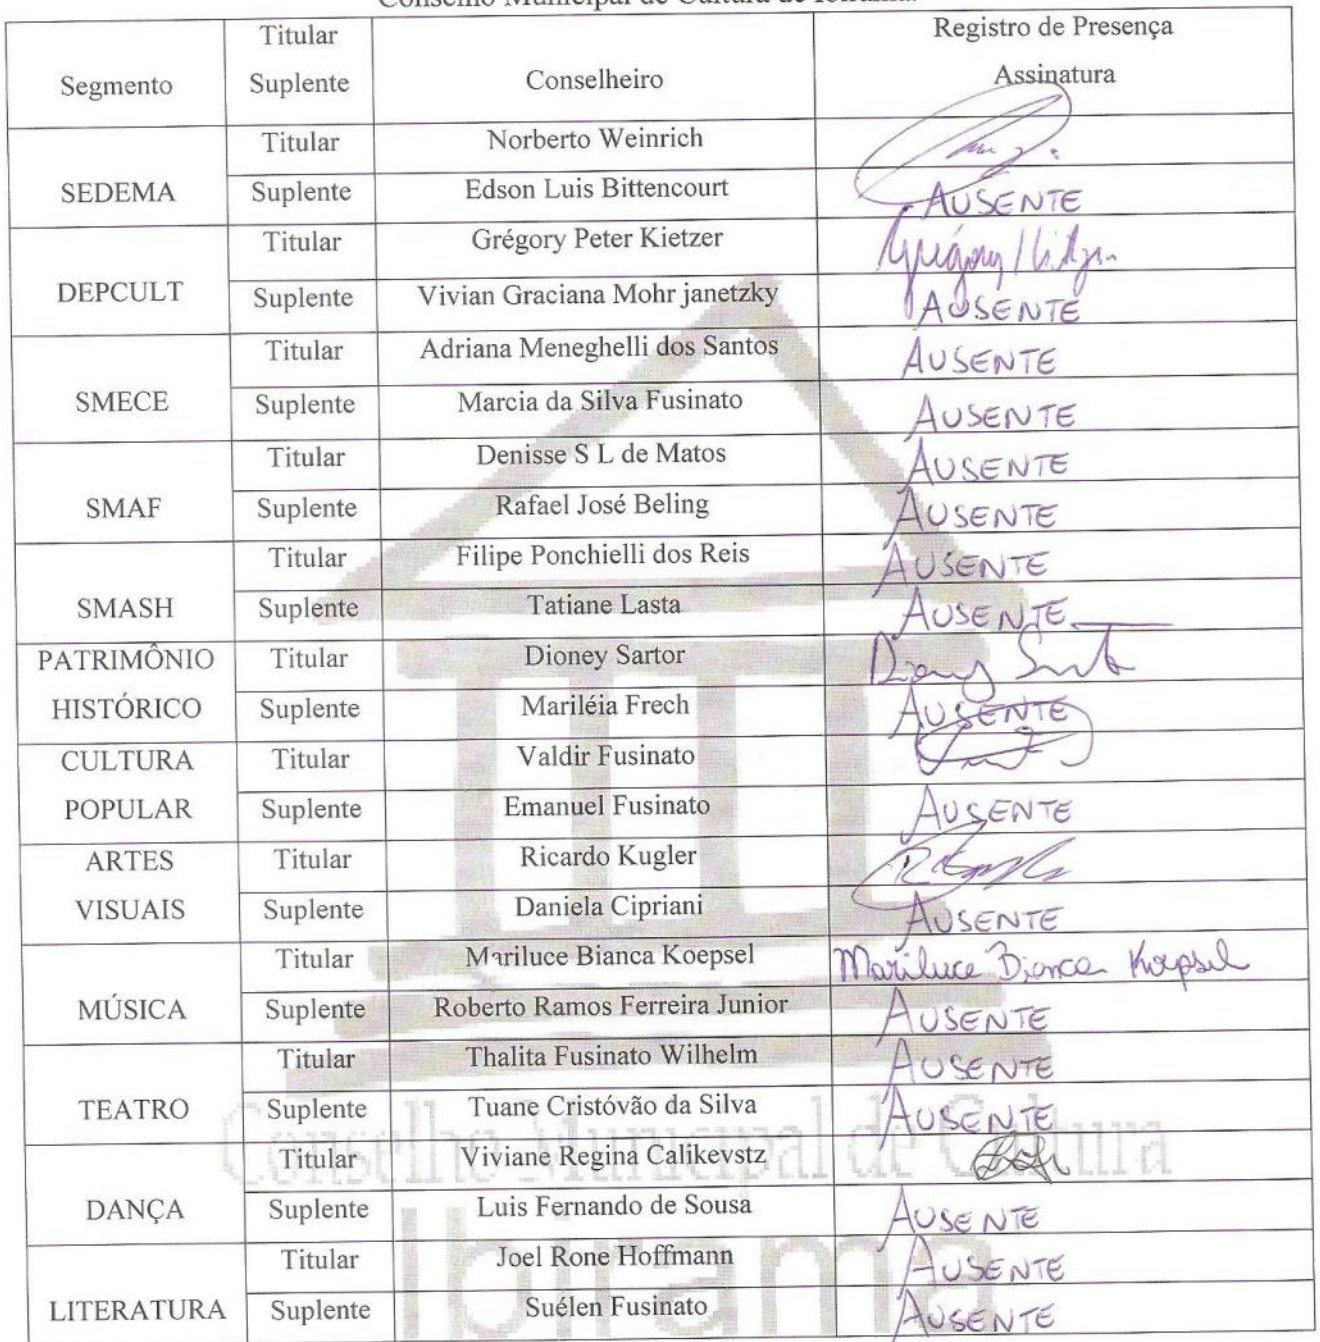 Conselho Municipal de Cultura de Ibirama.
Segmento Titular Suplente Conselheiro Registro de Presença Assinatura
SEDEMA Titular Norberto Weinrich
Suplente Edson Luis Bittencourt AUSENTE
DEPCULT Titular Grégory Peter Kietzer Grégory Kietzer
Suplente Vivian Graciana Mohr janetzky AUSENTE
SMECE Titular Adriana Meneghelli dos Santos AUSENTE
Suplente Marcia da Silva Fusinato AUSENTE
SMAF Titular Denisse S L de Matos AUSENTE
Suplente Rafael José Beling AUSENTE
SMASH Titular Filipe Ponchielli dos Reis AUSENTE
Suplente Tatiane Lasta AUSENTE
PATRIMÔNIO Titular Dioney Sartor
HISTÓRICO Suplente Mariléia Frech AUSENTE
CULTURA Titular Valdir Fusinato
POPULAR Suplente Emanuel Fusinato AUSENTE
ARTES Titular Ricardo Kugler
VISUAIS Suplente Daniela Cipriani AUSENTE
MÚSICA Titular Mariluce Bianca Koepsel Mariluce Bianca Koepsel
Suplente Roberto Ramos Ferreira Junior AUSENTE
TEATRO Titular Thalita Fusinato Wilhelm AUSENTE
Suplente Tuane Cristóvão da Silva AUSENTE
Conselho Municipal de Cultura
DANÇA Titular Viviane Regina Calikevstz
Suplente Luis Fernando de Sousa AUSENTE
Ibirama
LITERATURA Titular Joel Rone Hoffmann AUSENTE
Suplente Suélen Fusinato AUSENTE